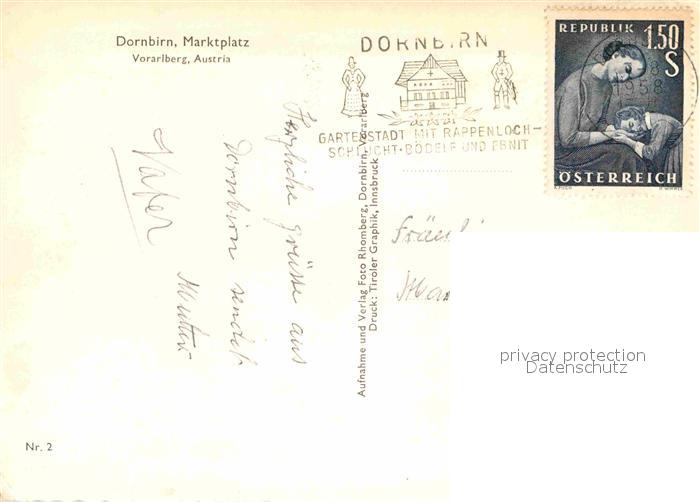 Dornbirn, Marktplatz
Vorarlberg, Austria
DORNBIRN
GARTENSTADT MIT RAPPENLOCH-
SCHLUCHT·BÖDELE UND EBNIT
REPUBLIK
1.50
S
1958
ÖSTERREICH
Herzliche Grüsse aus
Dornbirn sendet
Mutter
Vater
Aufnahme und Verlag Foto Rhomberg, Dornbirn, Vorarlberg
Druck: Tiroler Graphik, Innsbruck
privacy protection
Datenschutz
Nr. 2